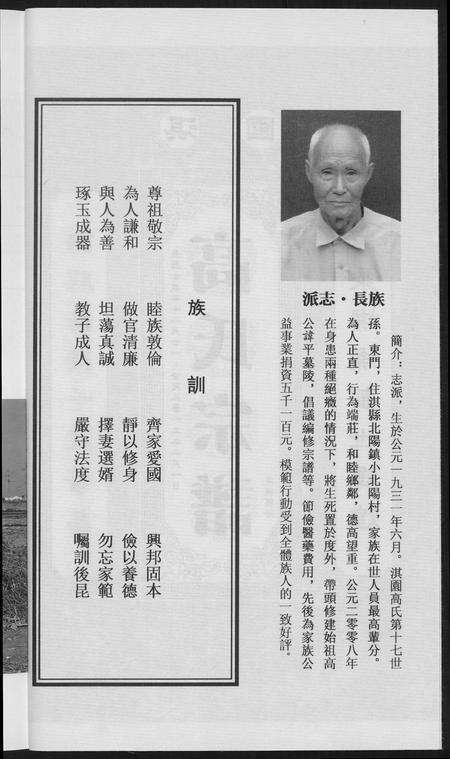 族長·志派
簡介：志派，生於公元一九三一年六月。淇園高氏第十七世
孫。東門，住淇縣北陽鎮小北陽村，家族在世人員最高輩分。
為人正直，行為端莊，和睦鄉鄰，德高望重。公元二零零八年
在身患兩種絕癥的情況下，將生死置於度外，帶頭修建始祖高
公諱平墓陵，倡議編修宗譜等。節儉醫藥費用，先後為家族公
益事業捐資五千一百元。模範行動受到全體族人的一致好評。
族訓
尊祖敬宗 睦族敦倫 齊家愛國 興邦固本
為人謙和 做官清廉 靜以修身 儉以養德
與人為善 坦蕩真誠 擇妻選婿 勿忘家範
琢玉成器 教子成人 嚴守法度 囑訓後昆